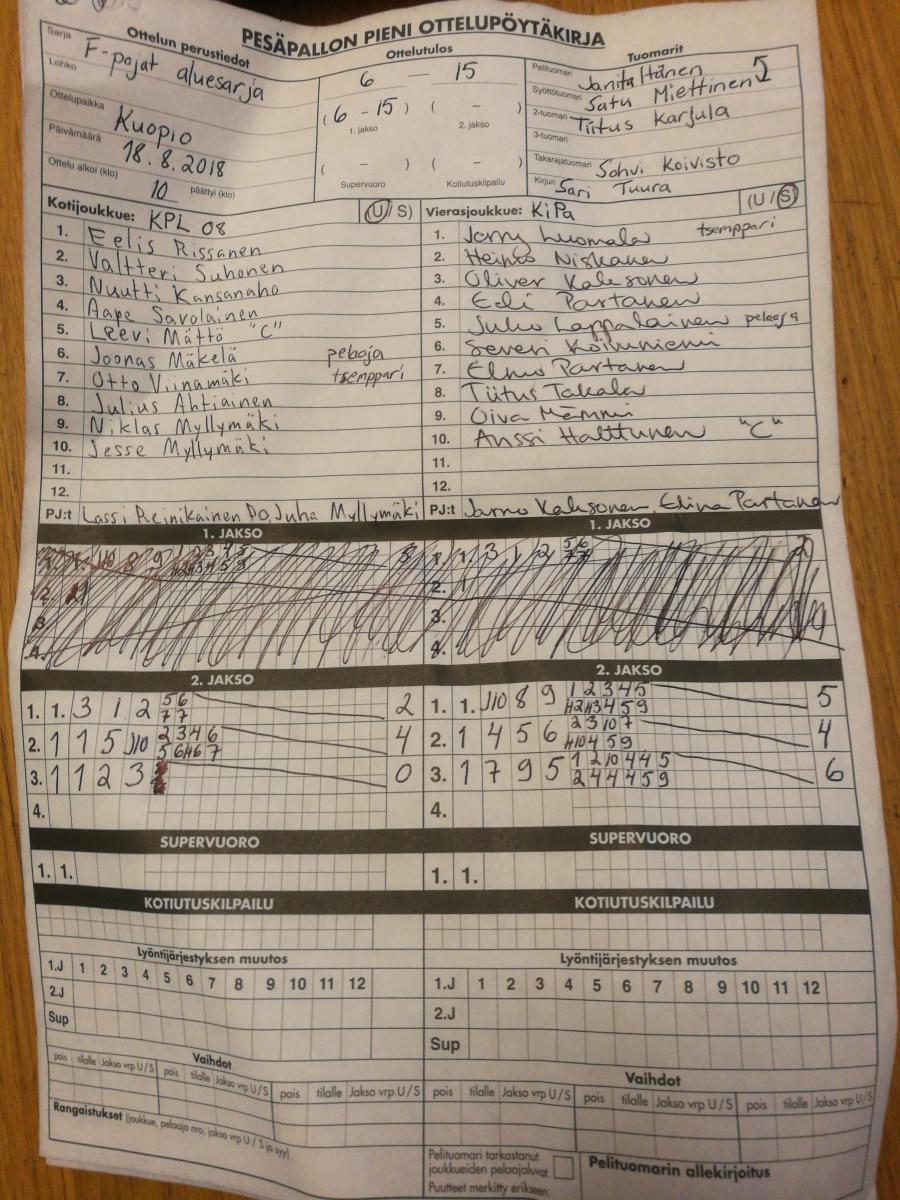 PESÄPALLON PIENI OTTELUPÖYTÄKIRJA
Ottelun perustiedot
Sarja F-pojat aluesarja
Lohko
Ottelupaikka Kuopio
Päivämäärä 18.8.2018
Ottelu alkoi (klo) 10 päättyi (klo)
Ottelutulos
6 – 15
(6 – 15) ( – )
1. jakso 2. jakso
( – ) ( – )
Supervuoro Kotiutuskilpailu
Tuomarit
Pelituomari Janita Itänen
Syöttötuomari Satu Miettinen
2-tuomari Tiitus Karjula
3-tuomari
Takarajatuomari Sohvi Koivisto
Kirjuri Sari Tuura
Kotijoukkue: KPL 08 (U/S)
1. Eelis Rissanen
2. Valtteri Suhonen
3. Nuutti Kansanaho
4. Aape Savolainen
5. Leevi Mättö "C"
6. Joonas Mäkelä pelaaja
7. Otto Viinamäki tsemppari
8. Julius Ahtiainen
9. Niklas Myllymäki
10. Jesse Myllymäki
11.
12.
PJ:t Lassi Reinikainen PO, Juha Myllymäki
Vierasjoukkue: KiPa (U/S)
1. Jerry Luomala tsemppari
2. Heinko Niskanen
3. Oliver Kaksonen
4. Eeli Partanen
5. Juho Lappalainen pelaaja
6. Severi Koivuniemi
7. Elmo Partanen
8. Tiitus Takala
9. Oiva Mämmi
10. Anssi Halttunen "C"
11.
12.
PJ:t Jarno Kaksonen, Elina Partanen
1. JAKSO 1. JAKSO
2.
3.
4.
2. JAKSO
1. 1. 3 1 2 5 6 2
7 7
2. 1 1 5 J10 2 3 4 6 4
5 6 H6 7
3. 1 1 2 3 0
4.
2. JAKSO
1. 1. J10 8 9 1 2 3 4 5 5
H2 H3 4 5 9
2. 1 4 5 6 2 3 10 7 4
H10 4 5 9
3. 1 7 9 5 1 2 10 4 4 5 6
2 4 4 4 5 9
4.
SUPERVUORO SUPERVUORO
1. 1. 1. 1.
KOTIUTUSKILPAILU KOTIUTUSKILPAILU
Lyöntijärjestyksen muutos Lyöntijärjestyksen muutos
1.J 1 2 3 4 5 6 7 8 9 10 11 12 1.J 1 2 3 4 5 6 7 8 9 10 11 12
2.J 2.J
Sup Sup
Vaihdot Vaihdot
pois tilalle Jakso vrp U/S pois tilalle Jakso vrp U/S pois tilalle Jakso vrp U/S pois tilalle Jakso vrp U/S pois tilalle Jakso vrp U/S pois tilalle Jakso vrp U/S
Rangaistukset (joukkue, pelaaja nro, jakso vrp U / S ja syy)
Pelituomari tarkastanut
joukkueiden pelaajaluvat.
Puutteet merkitty erikseen.
Pelituomarin allekirjoitus